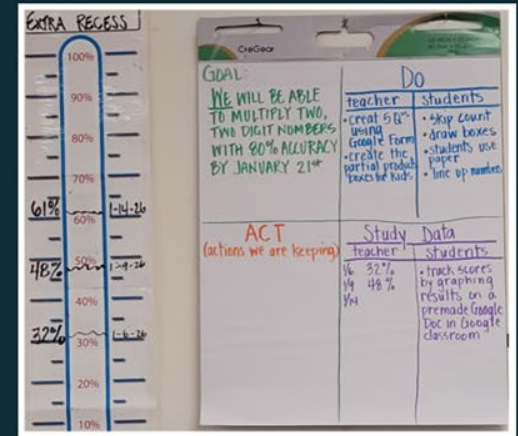 EXTRA RECESS
100%
90%
80%
70%
61% 60% 1-14-26
50%
48% 1-9-26
40%
32% 1-6-26
30%
20%
10%
CreGear
GOAL:
WE WILL BE ABLE
TO MULTIPLY TWO,
TWO DIGIT NUMBERS
WITH 80% ACCURACY
BY JANUARY 21st
Do
teacher
• creat 5 Q's
using
Google Form
• create the
partial product
boxes for kids
students
• skip count
• draw boxes
• students use
paper
• line up numbers
ACT
(actions we are keeping)
Study Data
teacher
1/6 32%
1/9 48%
1/14
students
• track scores
by graphing
results on a
premade Google
Doc in Google
classroom